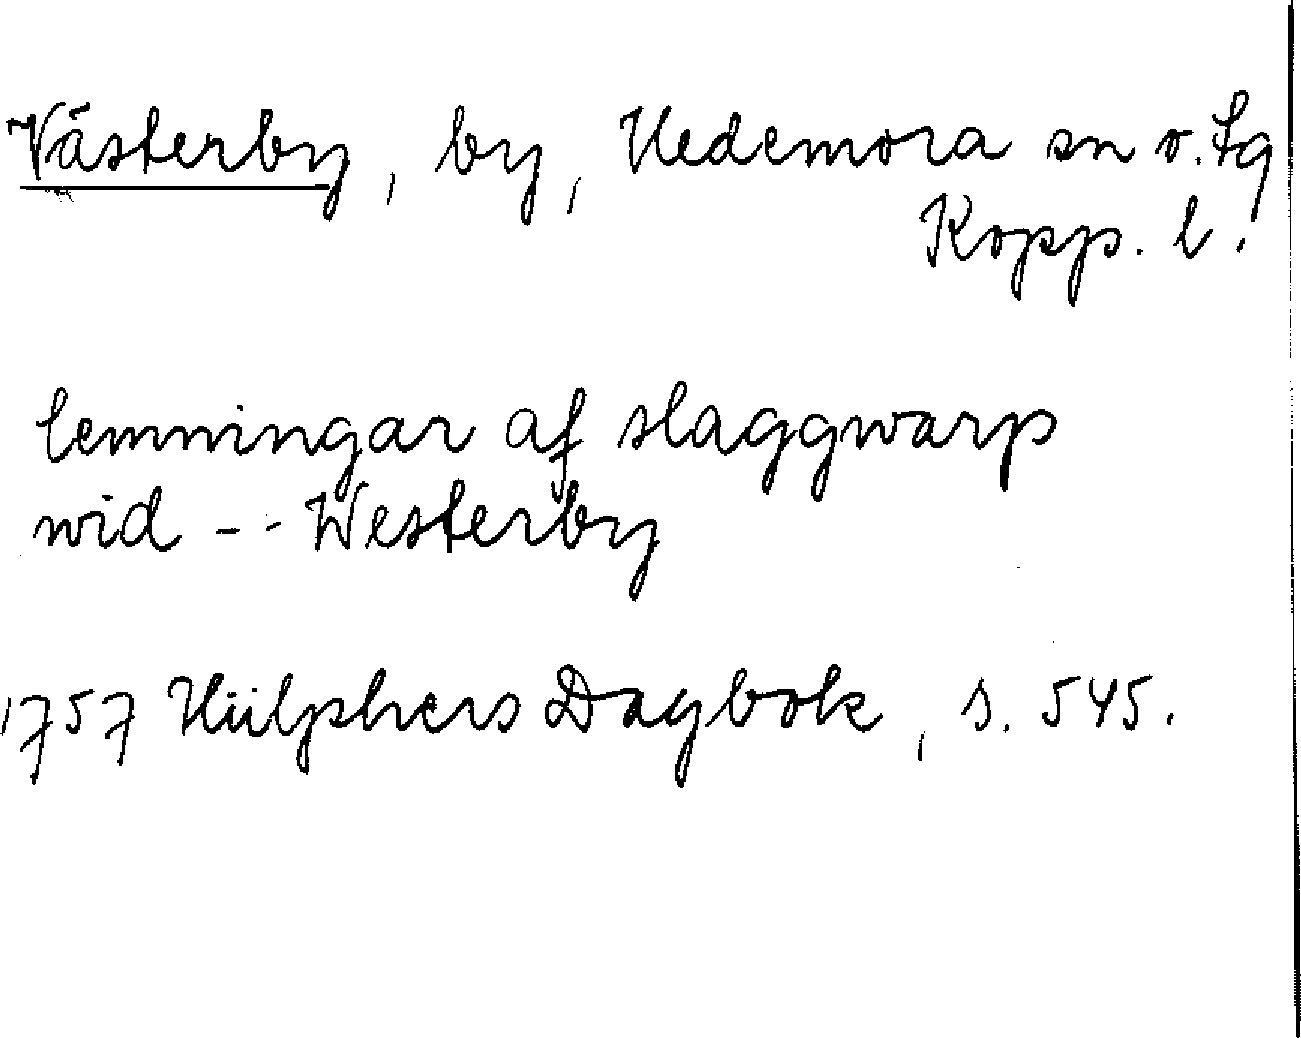 Västerby, by, Hedemora sn o. tg
Kopp. l.
lemningar af slaggwarp
wid - - Westerby
1757 Hülphers Dagbok, s. 545.